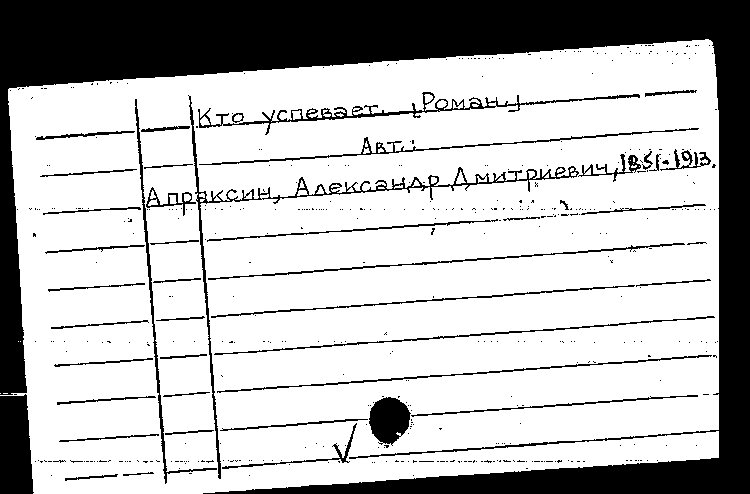 Кто успевает. [Роман.]
Авт.:
Апраксин, Александр Дмитриевич, 1851-1913.